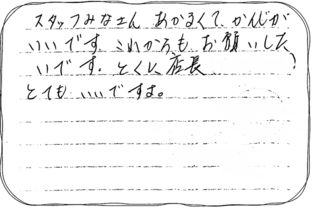 スタッフみなさん あかるくて、かんじが
いいです。これからも お願いした
いです。とくに、店長、
とても いいですよ。